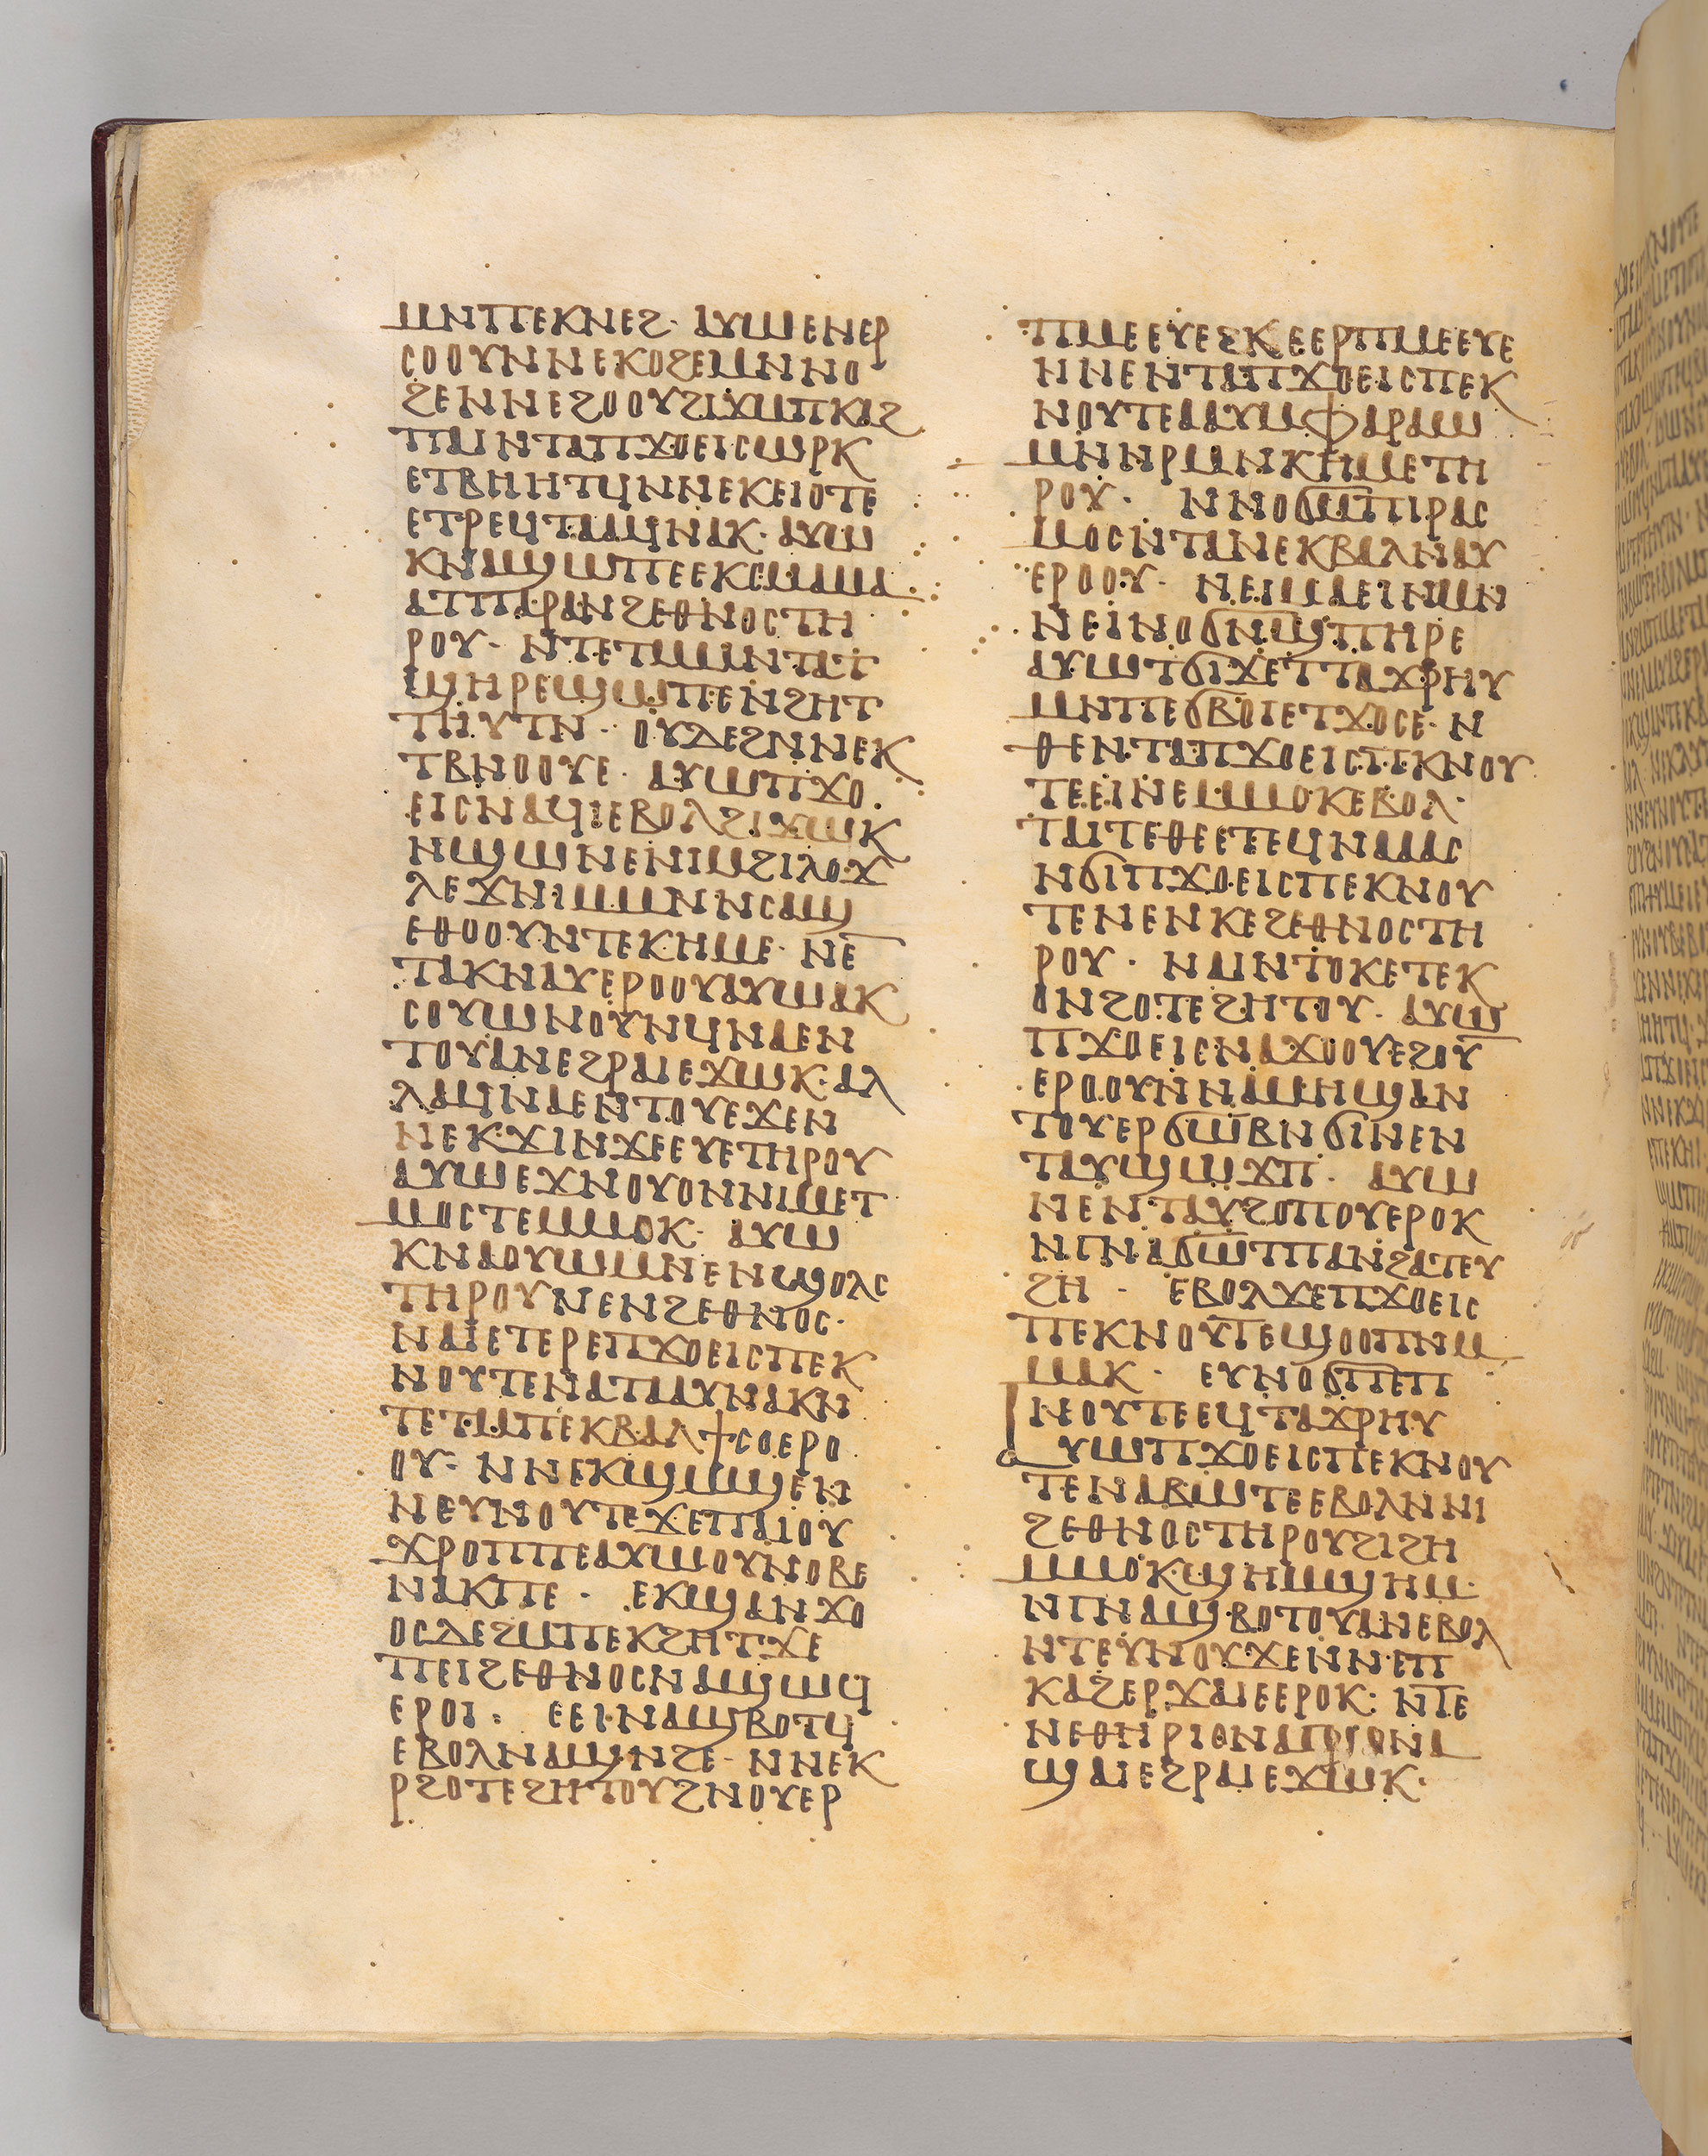 ⲙⲛⲡⲉⲕⲛⲉϩ· ⲁⲩⲱⲉⲛⲉⲣ
ⲥⲟⲟⲩⲛⲛⲉⲕⲟϩⲉⲙⲛⲛⲟ
ϩⲉⲛⲛⲉϩⲟⲟⲩϩⲓϫⲙⲡⲕⲁϩ
ⲡⲁⲓⲛⲧⲁⲡϫⲟⲉⲓⲥⲱⲣⲕ
ⲉⲧⲃⲏⲏⲧϥⲛⲛⲉⲕⲉⲓⲟⲧⲉ
ⲉⲧⲣⲉϥⲧⲁⲁϥⲛⲁⲕ· ⲁⲩⲱ
ⲕⲛⲁϣⲱⲡⲉⲉⲕⲥⲙⲁⲙⲁ
ⲁⲧⲡⲁⲣⲁⲛϩⲉⲑⲛⲟⲥⲧⲏ
ⲣⲟⲩ· ⲛⲧⲉⲧⲙⲙⲛⲧⲁⲧ
ϣⲏⲣⲉϣⲱⲡⲉⲛϩⲏⲧ
ⲧⲏⲩⲧⲛ· ⲟⲩⲇⲉϩⲛⲛⲉⲕ
ⲧⲃⲛⲟⲟⲩⲉ· ⲁⲩⲱⲡϫⲟ
ⲉⲓⲥⲛⲁϥⲓⲉⲃⲟⲗϩⲓϫⲱⲕ
ⲛϣⲱⲛⲉⲛⲓⲙϩⲓⲗⲟϫ
ⲗⲉϫⲛⲓⲙⲙⲛⲛⲥⲁϣ
ⲉⲑⲟⲟⲩⲛⲧⲉⲕⲏⲙⲉ· ⲛⲉ
ⲧⲁⲕⲛⲁⲩⲉⲣⲟⲟⲩⲁⲩⲱⲁⲕ
ⲥⲟⲩⲱⲛⲟⲩⲛϥⲛⲁⲉⲛ
ⲧⲟⲩⲁⲛⲉϩⲣⲁⲓⲉϫⲱⲕ· ⲁⲗ
ⲗⲁϥⲛⲁⲉⲛⲧⲟⲩⲉϫⲉⲛ
ⲛⲉⲕϫⲓⲛϫⲉⲉⲩⲉⲧⲏⲣⲟⲩ
ⲁⲩⲱⲉϫⲛⲟⲩⲟⲛⲛⲓⲙⲉⲧ
ⲙⲟⲥⲧⲉⲙⲙⲟⲕ· ⲁⲩⲱ
ⲕⲛⲁⲟⲩⲱⲙⲛⲉⲛϣⲟⲗⲥ
ⲧⲏⲣⲟⲩⲛⲉⲛϩⲉⲑⲛⲟⲥ·
ⲛⲁⲓⲉⲧⲉⲣⲉⲡϫⲟⲉⲓⲥⲡⲉⲕ
ⲛⲟⲩⲧⲉⲛⲁⲧⲁⲁⲩⲛⲁⲕⲛ
ⲧⲉⲧⲙⲡⲉⲕⲃⲁⲗϯⲥⲟⲉⲣⲟ
ⲟⲩ· ⲛⲛⲉⲕϣⲙϣⲉⲛ
ⲛⲉⲩⲛⲟⲩⲧⲉϫⲉⲡⲁⲓⲟⲩ
ϫⲣⲟⲡⲡⲉⲁⲩⲱⲟⲩⲛⲟⲃⲉ
ⲛⲁⲕⲡⲉ· ⲉⲕϣⲁⲛϫⲟ
ⲟⲥⲇⲉϩⲙⲡⲉⲕϩⲏⲧϫⲉ
ⲡⲉⲓϩⲉⲑⲛⲟⲥⲛⲁϣⲱϥ
ⲉⲣⲟⲓ· ⲉⲉⲓⲛⲁϣⲃⲟⲧϥ
ⲉⲃⲟⲗⲛⲁϣⲛϩⲉ· ⲛⲛⲉⲕ
ⲣϩⲟⲧⲉϩⲏⲧⲟⲩϩⲛⲟⲩⲉⲣ
ⲡⲙⲉⲉⲩⲉⲉⲕⲉⲉⲣⲡⲙⲉⲉⲩⲉ
ⲛⲛⲉⲛⲧⲁⲡϫⲟⲉⲓⲥⲡⲉⲕ
ⲛⲟⲩⲧⲉⲁⲁⲩⲙⲫⲁⲣⲁⲱ
ⲙⲛⲛⲣⲙⲛⲕⲏⲙⲉⲧⲏ
ⲣⲟⲩ· ⲛⲛⲟϭⲙⲡⲓⲣⲁⲥ
ⲙⲟⲥⲛⲧⲁⲛⲉⲕⲃⲁⲗⲛⲁⲩ
ⲉⲣⲟⲟⲩ· ⲛⲉⲓⲙⲁⲉⲓⲛⲙⲛ
ⲛⲉⲓⲛⲟϭⲛϣⲡⲏⲣⲉ
ⲁⲩⲱⲧϭⲓϫⲉⲧⲧⲁϫⲣⲏⲩ
ⲙⲛⲡⲉϭⲃⲟⲓⲉⲧϫⲟⲥⲉ· ⲛ
ⲑⲉⲛⲧⲁⲡϫⲟⲉⲓⲥⲡⲉⲕⲛⲟⲩ
ⲧⲉⲉⲓⲛⲉⲙⲙⲟⲕⲉⲃⲟⲗ·
ⲧⲁⲓⲧⲉⲑⲉⲉⲧⲉϥⲛⲁⲁⲁⲥ
ⲛϭⲓⲡϫⲟⲉⲓⲥⲡⲉⲕⲛⲟⲩ
ⲧⲉⲛⲉⲛⲕⲉϩⲉⲑⲛⲟⲥⲧⲏ
ⲣⲟⲩ· ⲛⲁⲓⲛⲧⲟⲕⲉⲧⲉⲕ
ⲟⲛϩⲟⲧⲉϩⲏⲧⲟⲩ· ⲁⲩⲱ
ⲡϫⲟⲉⲓⲥⲛⲁϫⲟⲟⲩⲉϩⲟⲩ
ⲉⲣⲟⲟⲩⲛⲛⲁⲙⲏϣⲁⲛ
ⲧⲟⲩⲉⲣϭⲱⲃⲛϭⲓⲛⲉⲛ
ⲧⲁⲩϣⲱϫⲡ· ⲁⲩⲱ
ⲛⲉⲛⲧⲁⲩϩⲟⲡⲟⲩⲉⲣⲟⲕ
ⲛⲓⲛⲁϭⲱⲡⲡⲁⲛϩⲁⲧⲉⲩ
ϩⲏ· ⲉⲃⲟⲗϫⲉⲡϫⲟⲉⲓⲥ
ⲡⲉⲕⲛⲟⲩⲧⲉϣⲟⲟⲡⲛⲙ
ⲙⲁⲕ· ⲉⲩⲛⲟϭⲡⲉⲡ
ⲛⲟⲩⲧⲉⲉϥⲧⲁϫⲣⲏⲩ
ⲁⲩⲱⲡϫⲟⲉⲓⲥⲡⲉⲕⲛⲟⲩ
ⲧⲉⲛⲁⲃⲱⲧⲉⲉⲃⲟⲗⲛⲛⲓ
ϩⲉⲑⲛⲟⲥⲧⲏⲣⲟⲩϩⲓϩⲏ
ⲙⲙⲟⲕϣⲏⲙϣⲏⲙ·
ⲛⲓⲛⲁϣⲃⲟⲧⲟⲩⲁⲛⲉⲃⲟⲗ
ⲛⲧⲉⲩⲛⲟⲩϫⲉⲛⲛⲉⲡ
ⲕⲁϩⲉⲣϫⲁⲓⲉⲉⲣⲟⲕ: ⲛⲧⲉ
ⲛⲉⲑⲏⲣⲓⲟⲛⲁⲅⲣⲓⲟⲛⲁ
ϣⲁⲓⲉϩⲣⲁⲓⲉϫⲱⲕ·